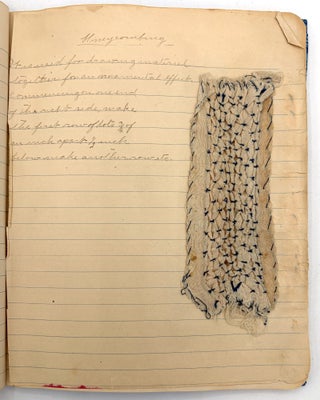 Honeycombing
Is used for drawing material
together for an ornamental effect.
Commencing on one end
of the side, make
the first row of dots ½ of
an inch apart ½ inch
below make another row etc.